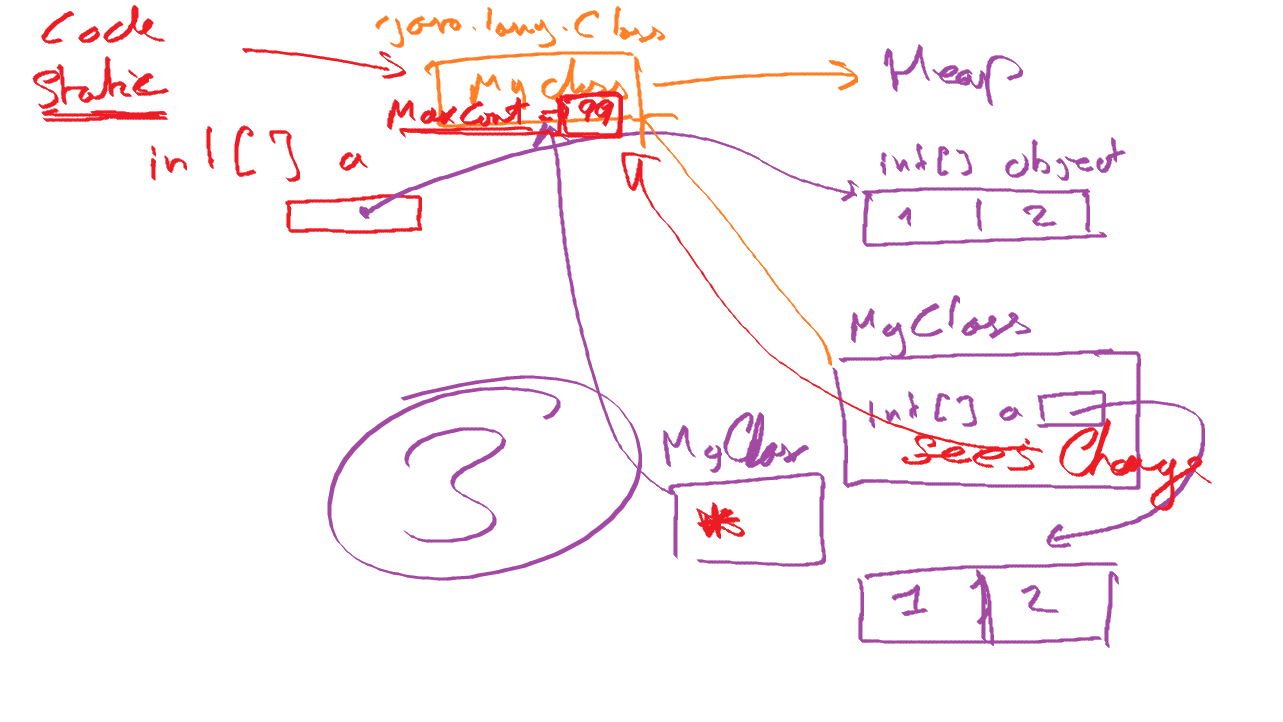 Code
Static
java.lang.Class
My class
MaxCont = 99
Heap
int[] a
int[] object
1 | 2
MyClass
int[] a
sees Change
3
MyClass
1 | 2